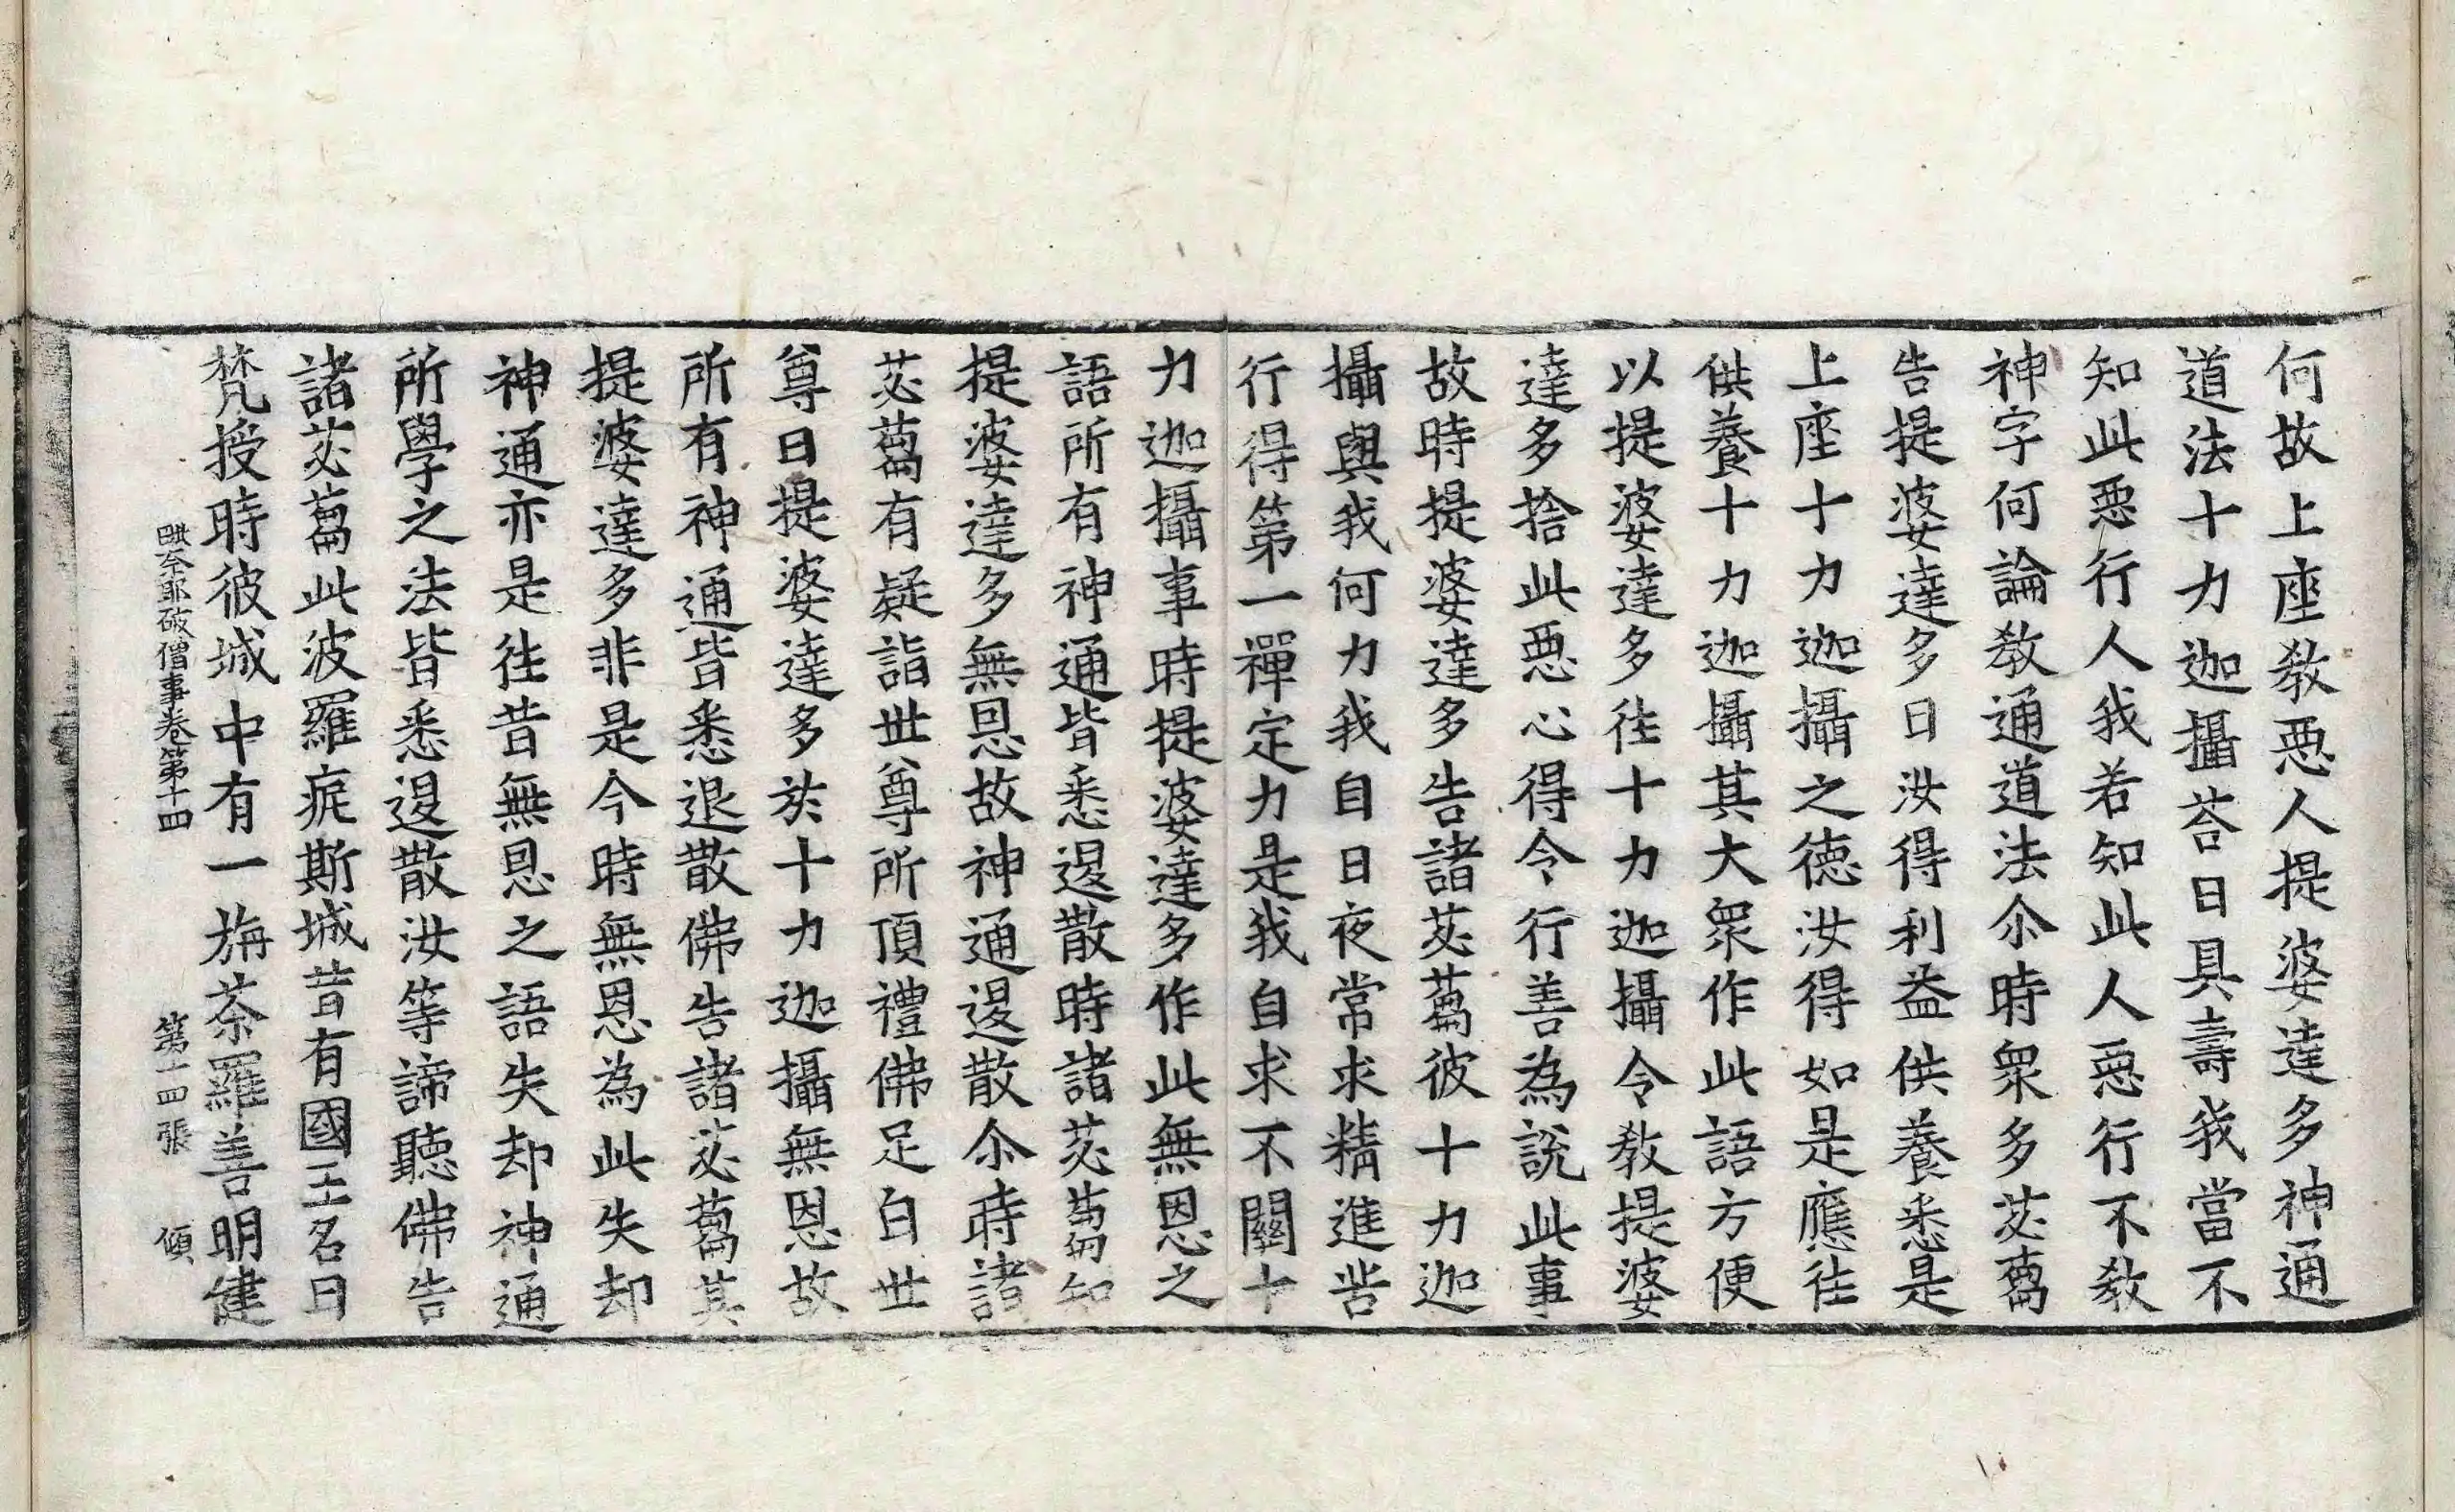 何故上座教惡人提婆達多神通
道法十力迦攝荅曰具壽我當不
知此惡行人我若知此人惡行不教
神字何論教通道法尒時眾多苾蒭
告提婆達多曰汝得利益供養悉是
上座十力迦攝之德汝得如是應往
供養十力迦攝其大眾作此語方便
以提婆達多往十力迦攝令教提婆
達多捨此惡心得令行善為說此事
故時提婆達多告諸苾蒭彼十力迦
攝與我何力我自日夜常求精進皆
行得第一禪定力是我自求不關十
力迦攝事時提婆達多作此無恩之
語所有神通皆悉退散時諸苾蒭知
提婆達多無恩故神通退散尒時諸
苾蒭有疑詣世尊所頂禮佛足白世
尊曰提婆達多於十力迦攝無恩故
所有神通皆悉退散佛告諸苾蒭其
提婆達多非是今時無恩為此失却
神通亦是往昔無恩之語失却神通
所學之法皆悉退散汝等諦聽佛告
諸苾蒭此波羅痆斯城昔有國王名曰
梵授時彼城中有一旃荼羅善明健
毗奈耶破僧事卷第十四 第十四張 傾